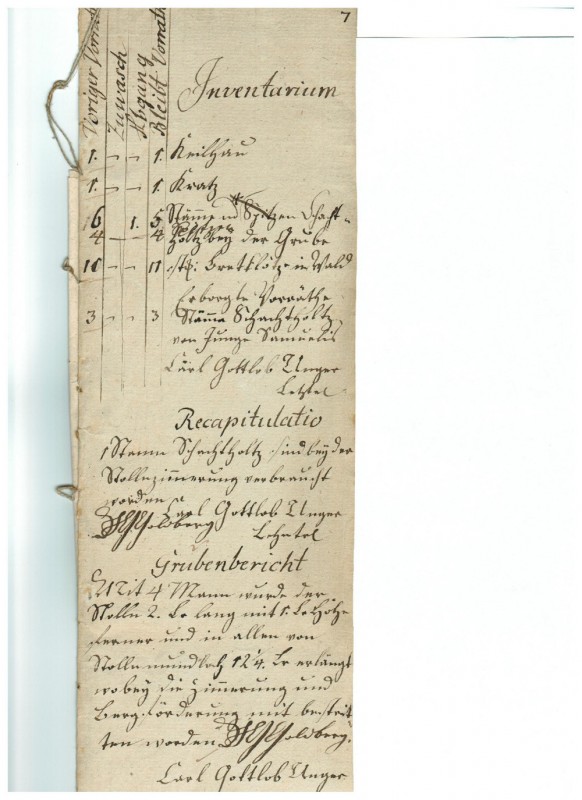 7
Voriger Vorrath
Zuwasch
Abgang
Bleibt Vorrath
Inventarium
1. — — 1. Keilhau
1. — — 1. Kratz
16 1. 5 Stämme Spitzen Schaft-
4 — 4 Holtz bey der Grube
11 — — 11 Bretklötze in Wald
Erborgte Vorräthe
3 — — 3 Stäme Schachtholtz
von Junge Samuelis
Carl Gottlob Unger
Recapitulatio
1 Stamm Schachtholtz sind bey der
Stollnzimmerung verbraucht
worden
Goldberg Carl Gottlob Unger
Grubenbericht
Mit 4 Mann wurde der
Stolln 2. Lr lang mit 1. Lr Höhe
ferner und in allen von
Stollnmundloch 12¼. Lr erlängt
wobey die Zimmerung und
Berg-förderung mit bestrit
ten worden Goldberg.
Carl Gottlob Unger